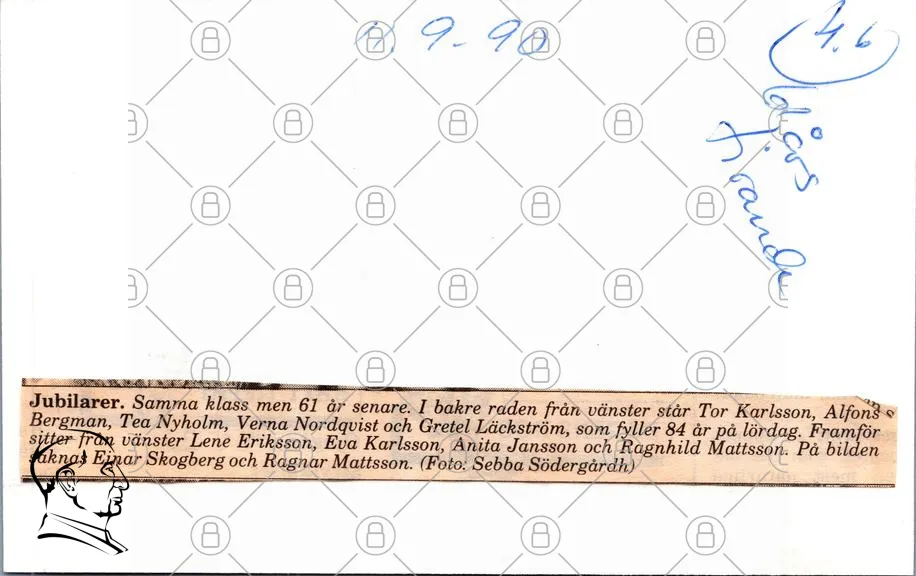 11. 9 - 90
4.6
Jubilarer. Samma klass men 61 år senare. I bakre raden från vänster står Tor Karlsson, Alfons
Bergman, Tea Nyholm, Verna Nordqvist och Gretel Läckström, som fyller 84 år på lördag. Framför
sitter från vänster Lene Eriksson, Eva Karlsson, Anita Jansson och Ragnhild Mattsson. På bilden
saknas Einar Skogberg och Ragnar Mattsson. (Foto: Sebba Södergårdh)